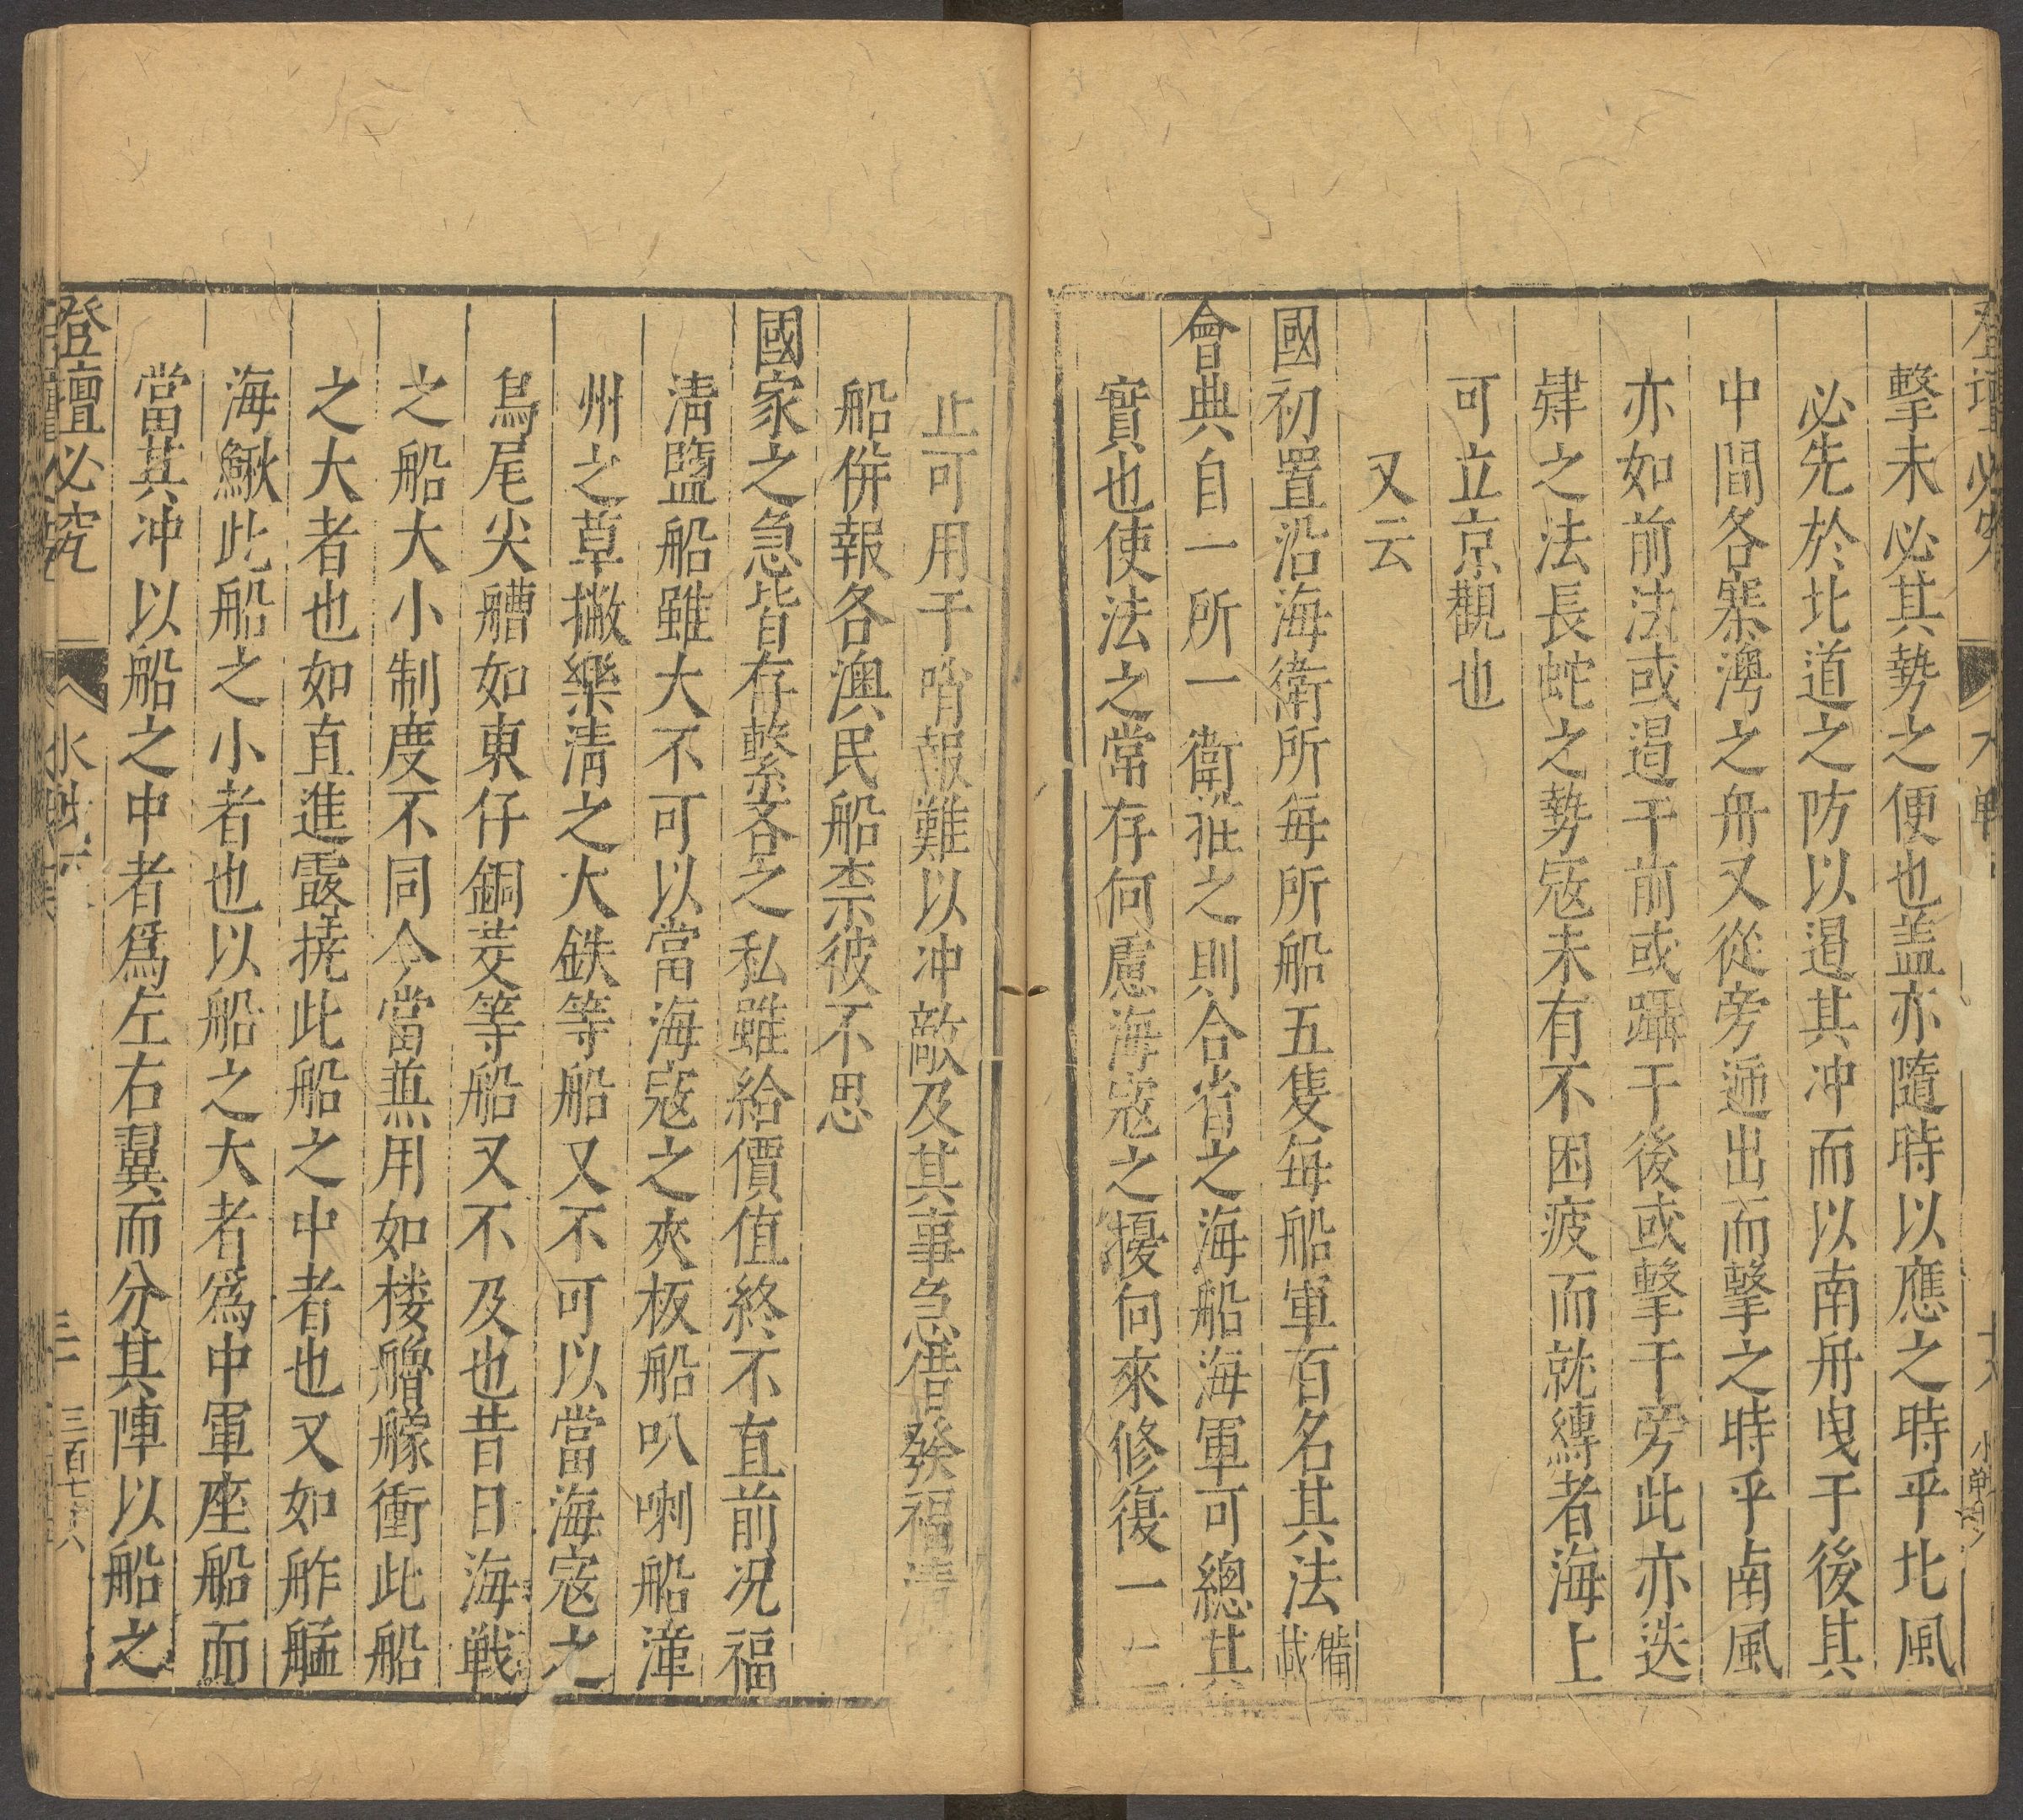 擊未必其勢之便也盖亦隨時以應之時乎北風
必先於北道之防以遏其冲而以南舟曳于後其
中間各寨澚之舟又從旁逓出而擊之時乎南風
亦如前法或遏于前或躡于後或擊于旁此亦迭
肄之法長蛇之勢寇未有不困疲而就縛者海上
可立京觀也
又云
國初置沿海衛所每所船五隻每船軍百名其法備
載
會典自一所一衛推之則合省之海船海軍可總其
實也使法之常存何慮海寇之擾何來修復一二
止可用于哨報難以冲敵及其事急借發福清
船併報各澳民船柰彼不思
國家之急皆存繫吝之私雖給價值終不直前况福
清鹽船雖大不可以當海寇之夾板船叭喇船漳
州之草撇樂清之大鉄等船又不可以當海寇之
鳥尾尖艚如東仔銅茭等船又不及也昔日海戦
之船大小制度不同今當無用如楼艪艨衝此船
之大者也如直進露撓此船之中者也又如舴艋
海鰍此船之小者也以船之大者爲中軍座船而
當其冲以船之中者爲左右翼而分其陣以船之
登壇必究
水戦
三百七十八